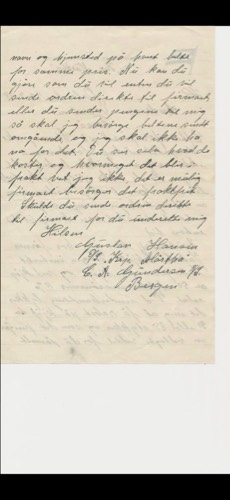 mon og hjemsted på hvert bilde
for samme pris. Nu kan du
gjøre som du vil enten du vil
sende ordren direkte til firmaet
eller du sender pengene til mig
så skal jeg besørge bildene sendt
omgående og jeg skal ikke ha
nå for det. En sis

koster og hvormeget det blir
vet jeg ikke, det er mulig
firmaet besørger det
Skulde du sende ordren direkte
til firmaet får du underrette mig
Hilsen
Gunstav Hansen
C. A. Gundersen
Bergen